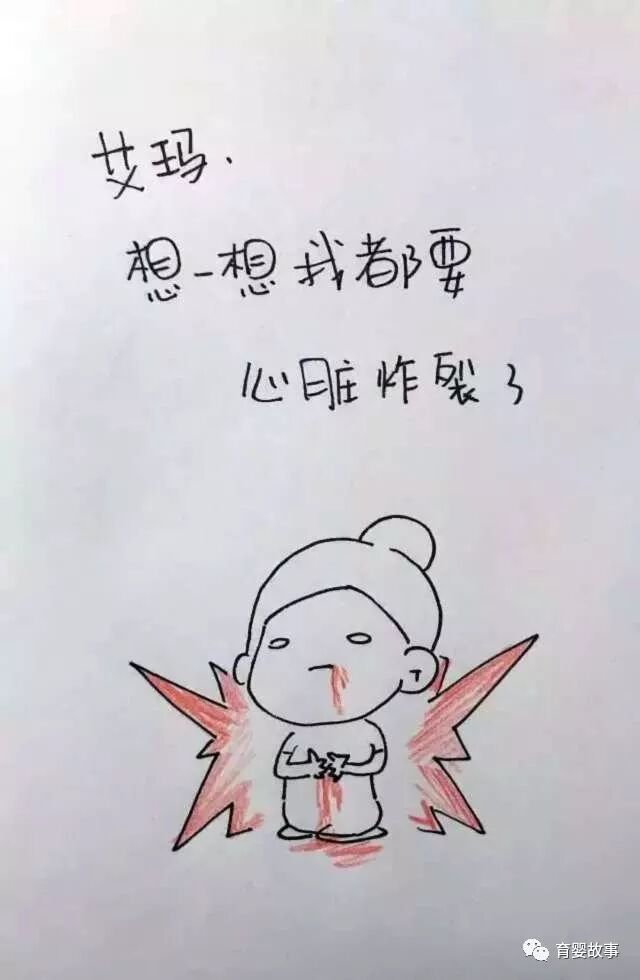 艾玛.
想一想我都要
心脏炸裂了
育婴故事